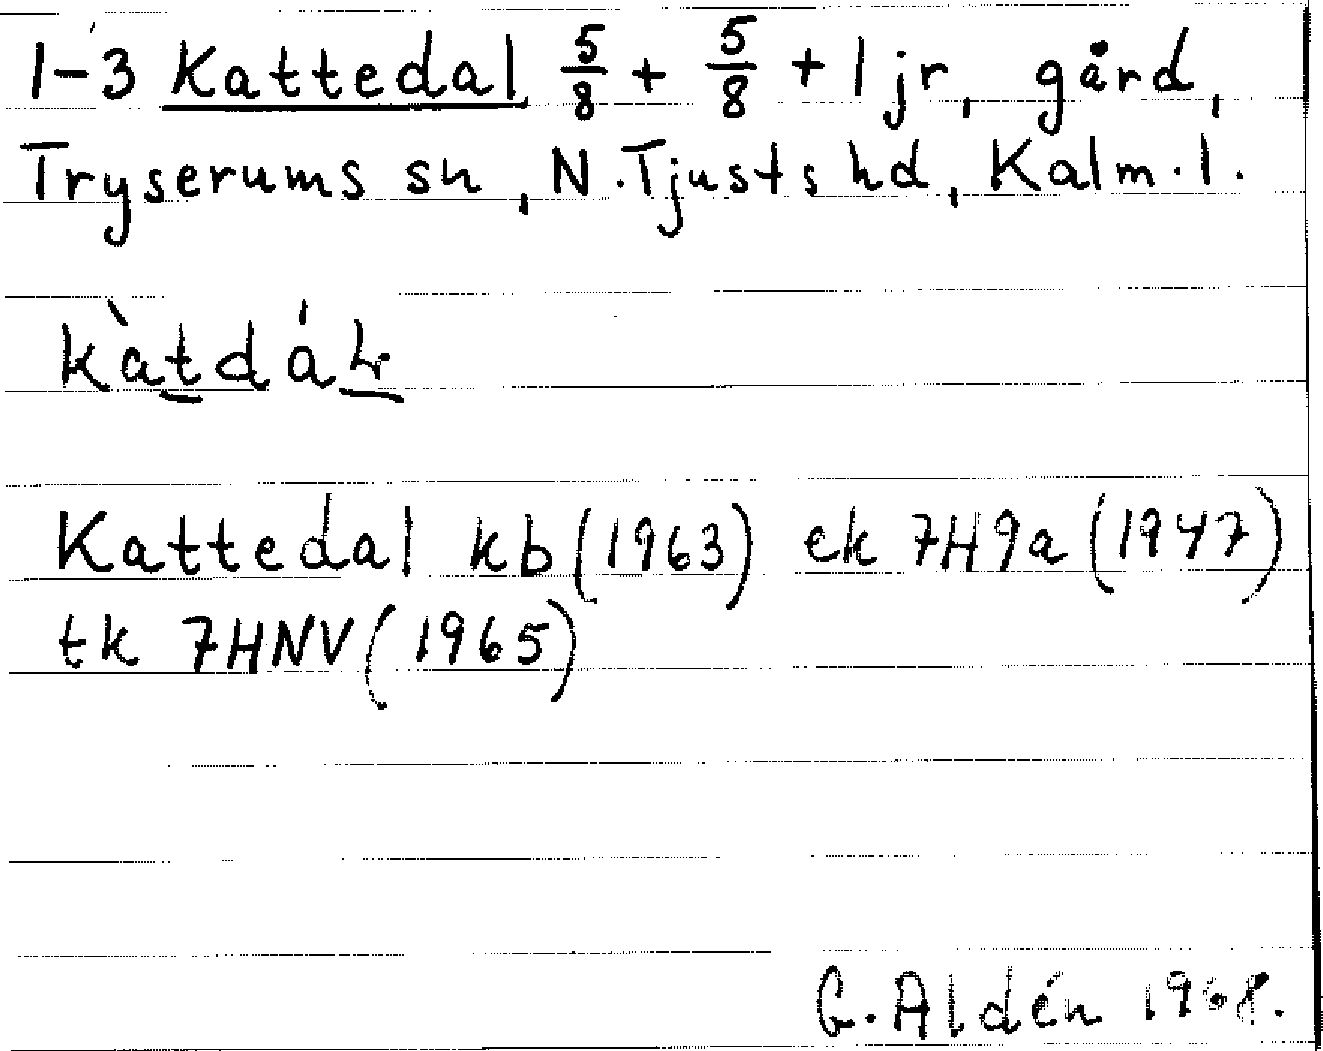 1-3 Kattedal 5/8 + 5/8 + 1 jr, gård,
Tryserums sn, N. Tjusts hd, Kalm. l.
Kattedal kb (1963) ek 7H9a (1947)
tk 7HNV (1965)
G. Aldén 1968.